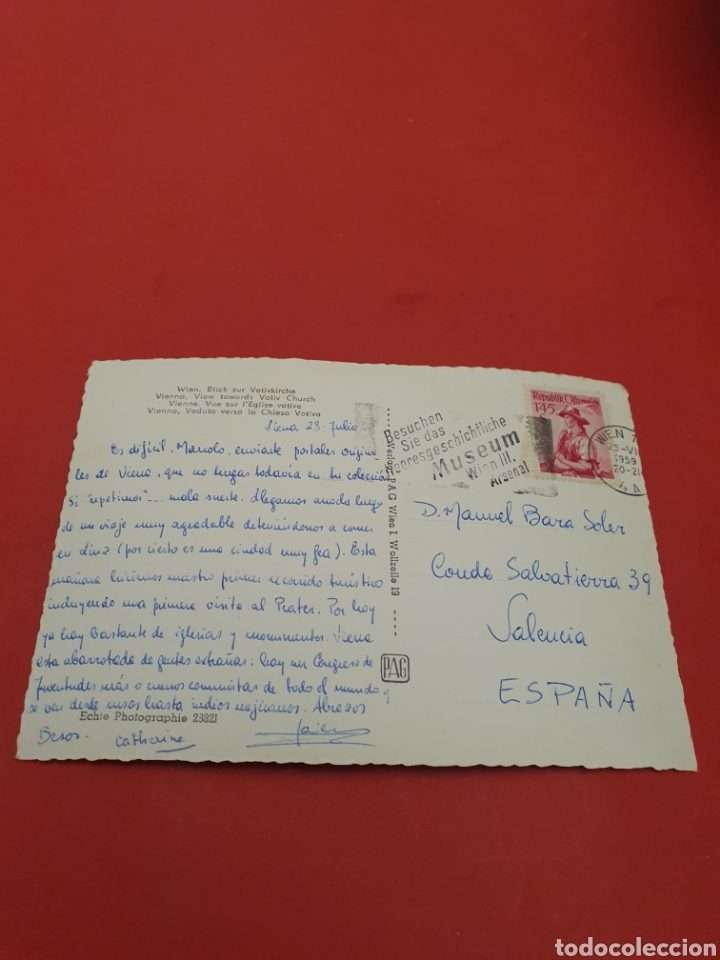 Wien, Blick zur Votivkirche
Vienna, View towards Votiv Church
Vienne, Vue sur l'Eglise votive
Vienna, Veduta verso la Chiesa Votiva
Viena 28-Julio
Es difícil, Manolo, enviarte postales origina-
les de Viena, que no tengas todavía en tu colección
Si "repetimos"... mala suerte. Llegamos anoche luego
de un viaje muy agradable deteniéndonos a comer
en Linz (por cierto es una ciudad muy fea). Esta
mañana hicimos nuestro primer recorrido turístico
incluyendo una primera visita al Prater. Por hoy
ya hay bastante de iglesias y monumentos. Viena
esta abarrotada de gentes extrañas: hay un Congreso de
Juventudes más o menos comunistas de todo el mundo y
se ven desde rusos hasta indios mejicanos. Abrazos
Echte Photographie 23821
Besos. Catherine
Verlag P A G Wien I Wollzeile 19
PAG
Besuchen
Sie das
Heeresgeschichtliche
Museum
Wien III.
Arsenal
Republik Österreich
1'45
WIEN
1959
20-21
D. Manuel Bara Soler
Conde Salvatierra 39
Valencia
ESPAÑA
todocoleccion